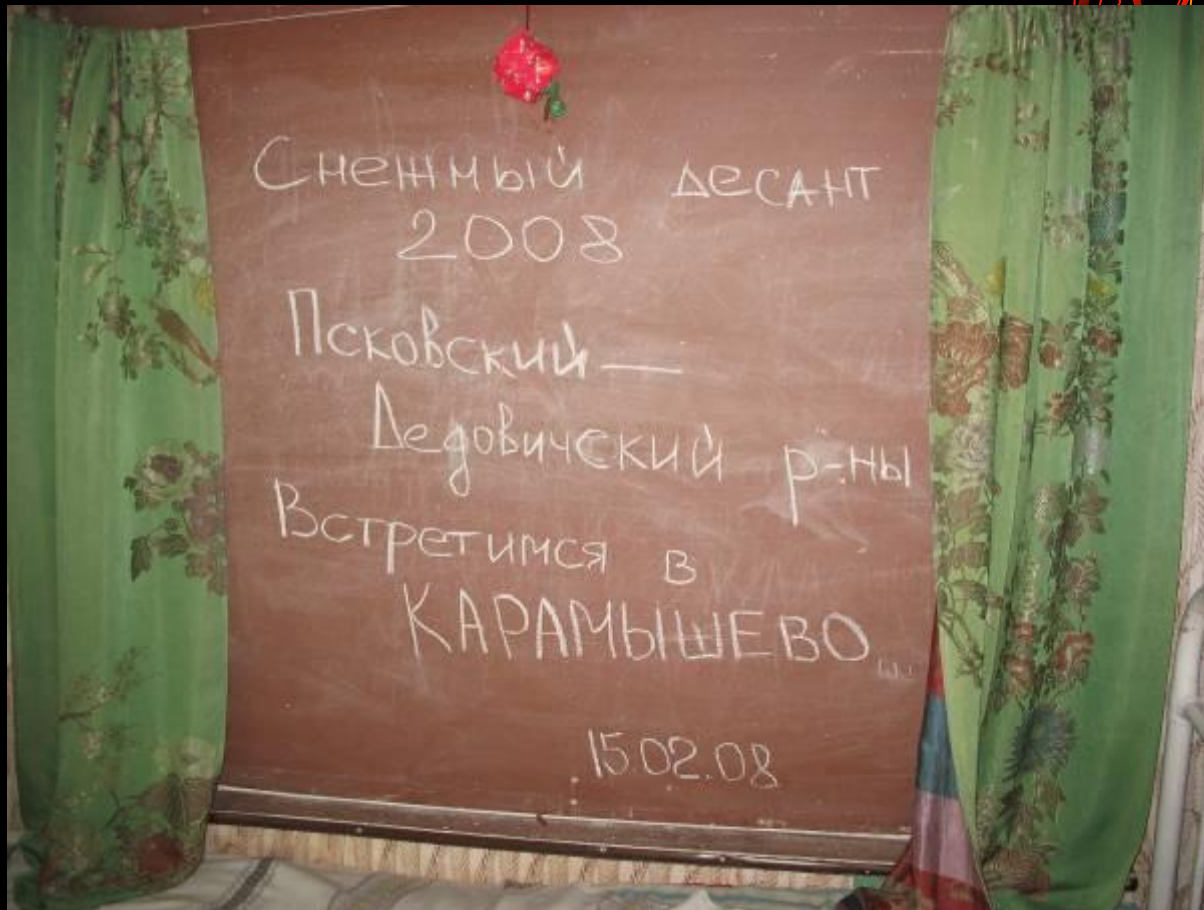 Снежный десант
2008
Псковский —
Дедовичский р-ны
Встретимся в
КАРАМЫШЕВО...
15.02.08